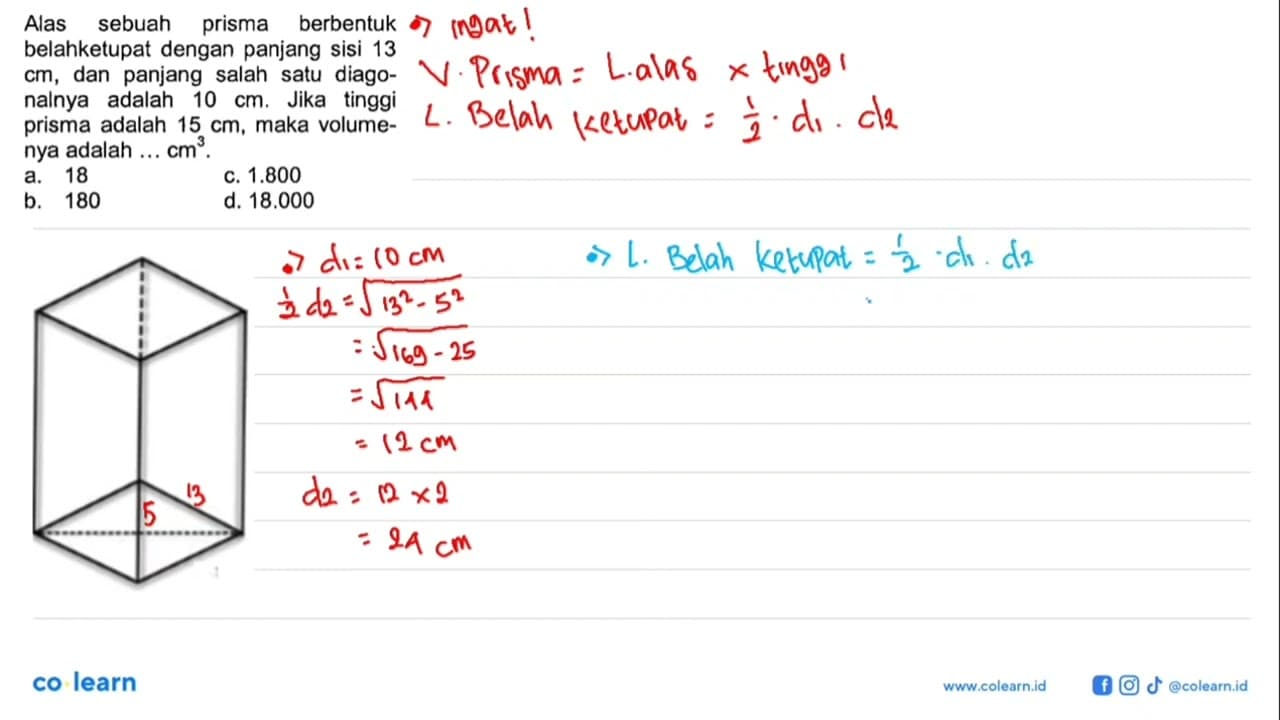 Alas sebuah prisma berbentuk
belahketupat dengan panjang sisi 13
cm, dan panjang salah satu diago-
nalnya adalah 10 cm. Jika tinggi
prisma adalah 15 cm, maka volume-
nya adalah ... cm³.
a. 18 c. 1.800
b. 180 d. 18.000
Ingat!
V. Prisma = L. alas × tinggi
L. Belah Ketupat = 1/2 · d1 · d2
d1 = 10 cm
1/2 d2 = √13² - 5²
= √169 - 25
= √144
= 12 cm
d2 = 12 × 2
= 24 cm
L. Belah Ketupat = 1/2 · d1 · d2
13
5
co learn
www.colearn.id
@colearn.id